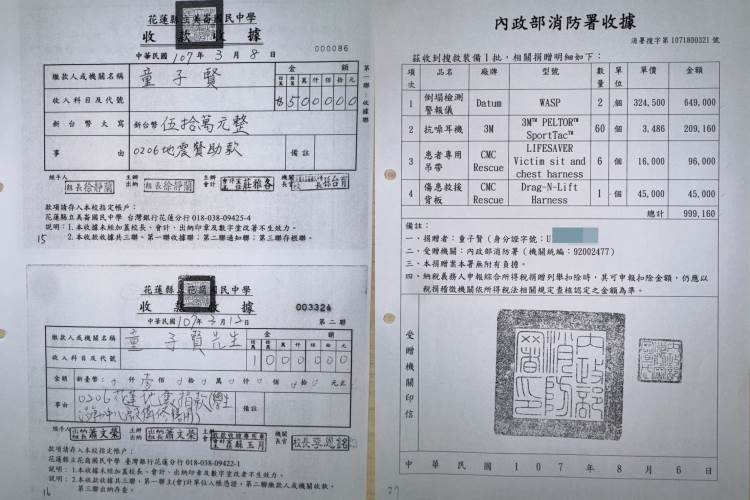 花蓮縣立美崙國民中學
收款收據
000086
中華民國107年3月8日
第一聯：收據聯
繳款人或機關名稱
童子賢
金額
收入科目及代號
500000
新台幣大寫
新台幣 伍拾萬元整
事由
0206地震贊助款
備註
經手人
主辦出納
主辦會計
機關長官
組長徐靜蘭
組長徐靜蘭
款項請存入本校指定帳戶：
花蓮縣立美崙國民中學 台灣銀行花蓮分行 018-038-09425-4
說明：1.本收據未經加蓋校長、會計、出納印章及數字塗改者不生效力。
2.本收款收據共三聯。第一聯收據聯；第二聯通知聯；第三聯存根聯。
15
花蓮縣立花崗國民中學
收款收據
003324
中華民國107年3月12日
第二聯
繳款人或機關名稱
童子賢先生
金額
收入科目及代號
1000000
金額
新臺幣：
事由
0206花蓮地震捐款
備註
蕭文榮
蕭文榮
款項請存入本校指定帳戶：
花蓮縣立花崗國民中學 臺灣銀行花蓮分行 018-038-09422-1
說明：1.本收據未經加蓋校長、會計、出納印章及數字塗改者不生效力。
16
內政部消防署收據
消署搜字第1071800321號
茲收到搜救裝備1批，相關捐贈明細如下：
項次 品名 廠牌 型號 數量 單位 單價 金額
1 倒塌檢測警報儀 Datum WASP 2 個 324,500 649,000
2 抗噪耳機 3M 3M™ PELTOR™ SportTac™ 60 個 3,486 209,160
3 患者專用吊帶 CMC Rescue LIFESAVER Victim sit and chest harness 6 個 16,000 96,000
4 傷患救援背板 CMC Rescue Drag-N-Lift Harness 1 個 45,000 45,000
總計 999,160
備註：
一、捐贈者：童子賢（身分證字號：U
二、受贈機關：內政部消防署（機關統編：92002477）
三、本捐贈案本署無附有負擔。
四、納稅義務人申報綜合所得稅捐贈列舉扣除時，其可申報扣除金額，仍應以
稅捐稽徵機關依所得稅法相關規定查核認定之金額為準。
受贈機關印信
內政部消防署印
中華民國107年8月6日